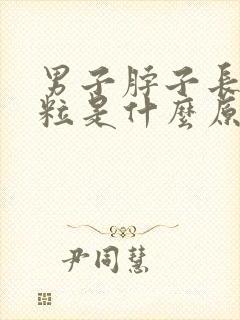 男子脖子長
粒是什麼原
尹同慧